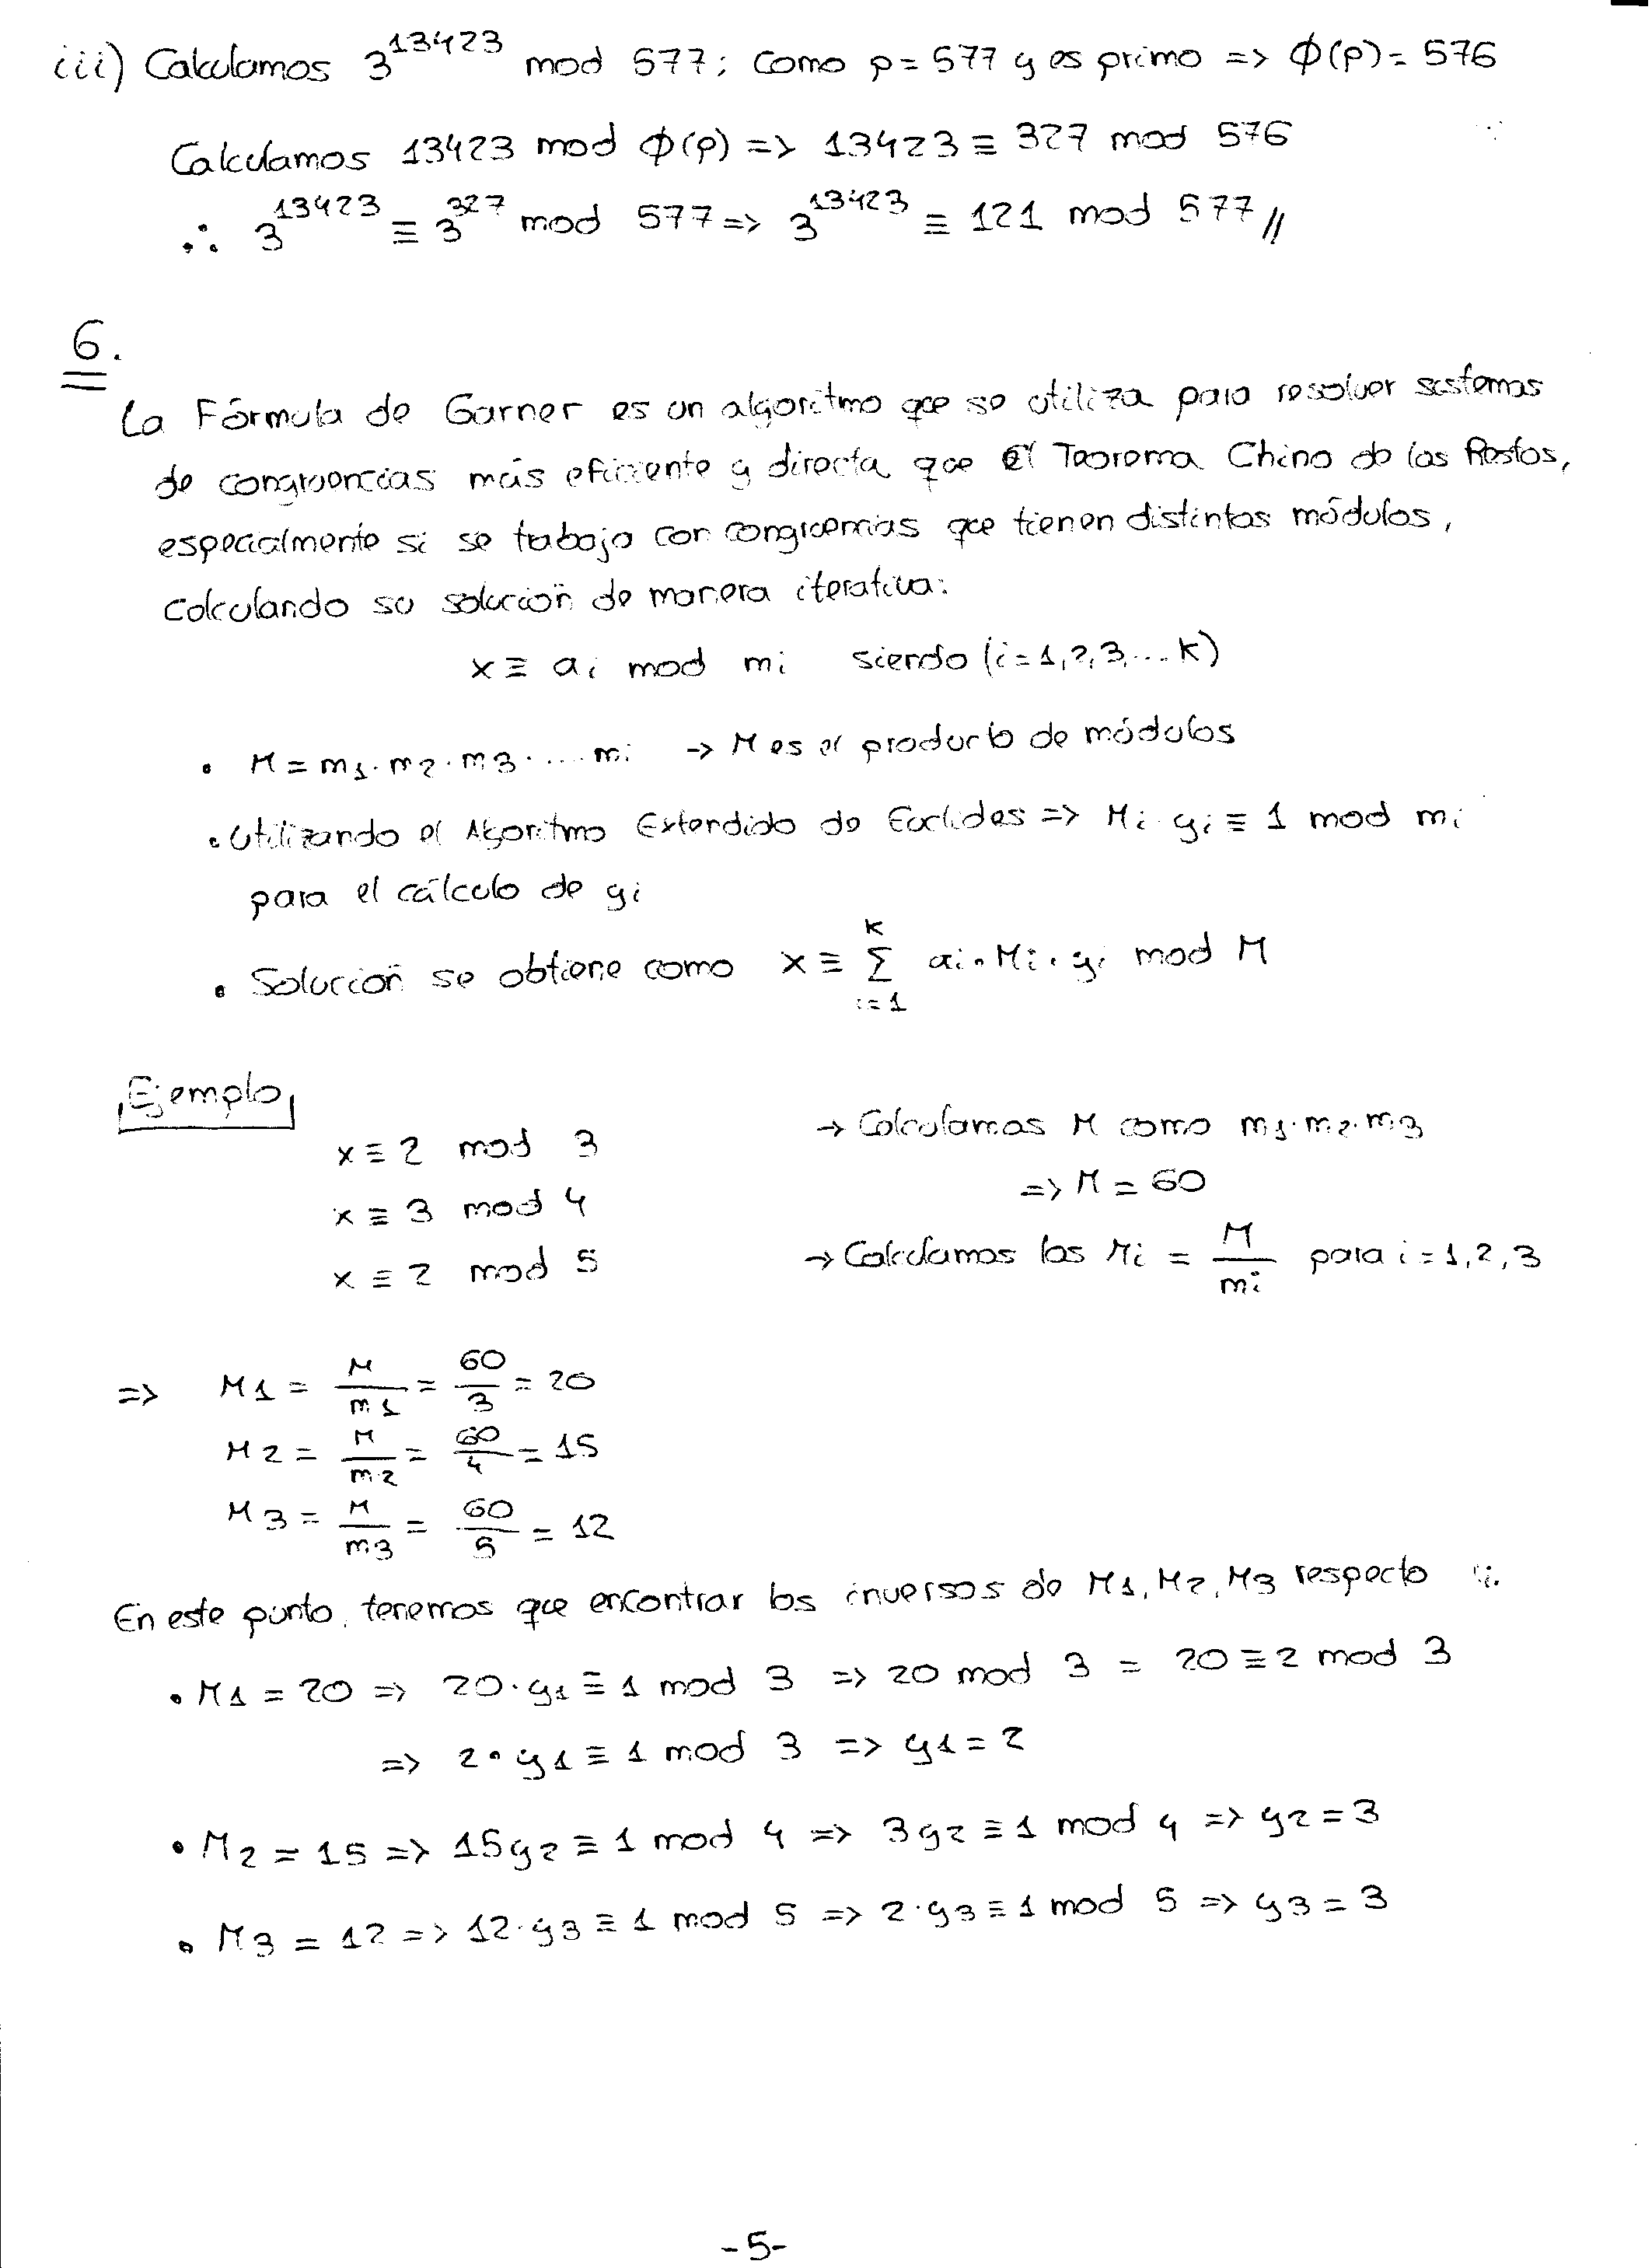 iii) Calculamos 3^13423 mod 577; como p = 577 y es primo => ϕ(p) = 576
Calculamos 13423 mod ϕ(p) => 13423 ≡ 327 mod 576
∴ 3^13423 ≡ 3^327 mod 577 => 3^13423 ≡ 121 mod 577 //
6.
La Fórmula de Garner es un algoritmo que se utiliza para resolver sistemas
de congruencias más eficiente y directa que el Teorema Chino de los Restos,
especialmente si se trabaja con congruencias que tienen distintos módulos,
calculando su solución de manera iterativa:
x ≡ ai mod mi siendo (i = 1, 2, 3, ... k)
• M = m1 · m2 · m3 · .... mi -> M es el producto de módulos
• Utilizando el Algoritmo Extendido de Euclides => Mi · yi ≡ 1 mod mi
para el cálculo de yi
• Solución se obtiene como x ≡ Σ_{i=1}^{k} ai · Mi · yi mod M
Ejemplo
x ≡ 2 mod 3
x ≡ 3 mod 4
x ≡ 2 mod 5
-> Calculamos M como m1 · m2 · m3
=> M = 60
-> Calculamos los Mi = M/mi para i = 1, 2, 3
=> M1 = M/m1 = 60/3 = 20
M2 = M/m2 = 60/4 = 15
M3 = M/m3 = 60/5 = 12
En este punto, tenemos que encontrar los inversos de M1, M2, M3 respecto
• M1 = 20 => 20 · y1 ≡ 1 mod 3 => 20 mod 3 = 20 ≡ 2 mod 3
=> 2 · y1 ≡ 1 mod 3 => y1 = 2
• M2 = 15 => 15y2 ≡ 1 mod 4 => 3y2 ≡ 1 mod 4 => y2 = 3
• M3 = 12 => 12 · y3 ≡ 1 mod 5 => 2 · y3 ≡ 1 mod 5 => y3 = 3
- 5 -